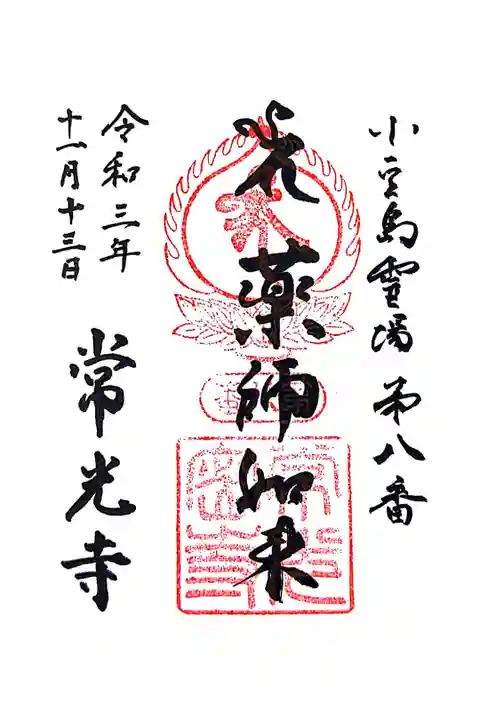 小豆島霊場 第八番
薬師如来
令和三年
十一月十三日
常光寺